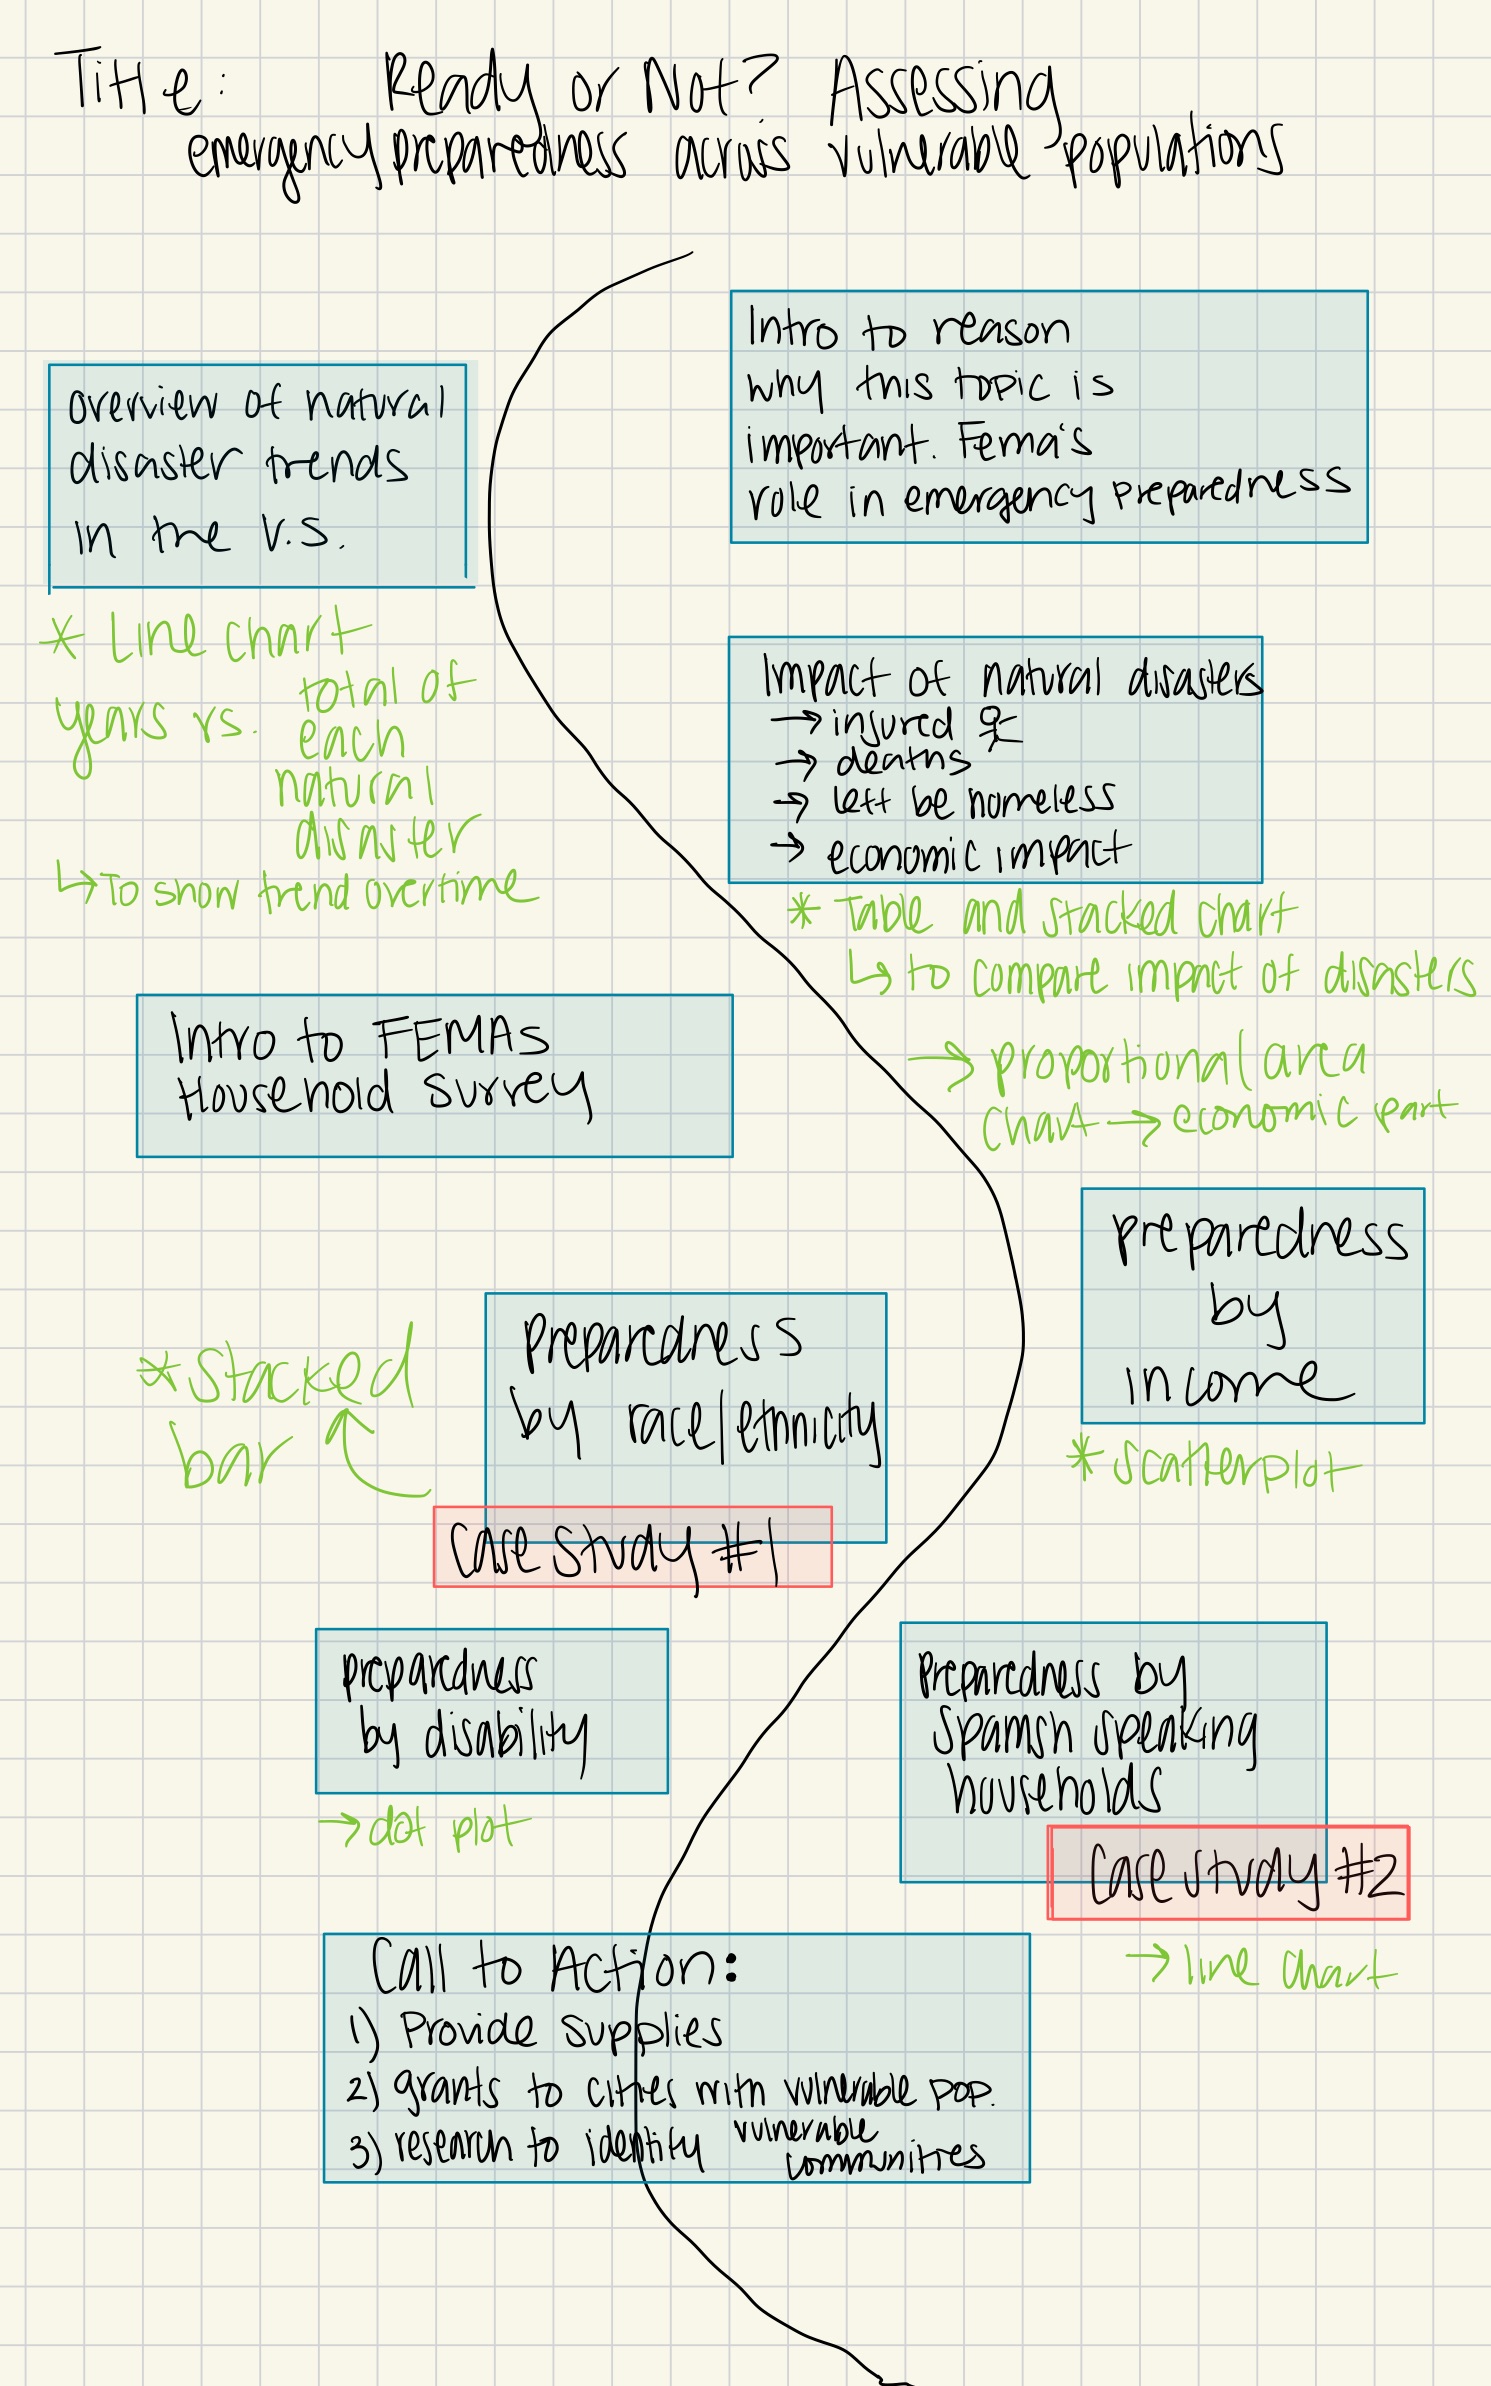 Title: Ready or Not? Assessing
emergency preparedness across vulnerable populations
Intro to reason
why this topic is
important. Fema's
role in emergency preparedness
overview of natural
disaster trends
in the U.S.
* Line chart
years vs. total of
each
natural
disaster
↳ To show trend overtime
Impact of natural disasters
→ injured
→ deaths
→ left be homeless
→ economic impact
* Table and stacked chart
↳ to compare impact of disasters
→ proportional area
chart → economic part
Intro to FEMAs
Household Survey
preparedness
by
income
* scatterplot
Preparedness
by race/ethnicity
* Stacked
bar
Case Study #1
preparedness
by disability
→ dot plot
Preparedness by
Spanish speaking
households
Case study #2
→ line chart
Call to Action:
1) Provide supplies
2) grants to cities with vulnerable pop.
3) research to identify vulnerable
communities